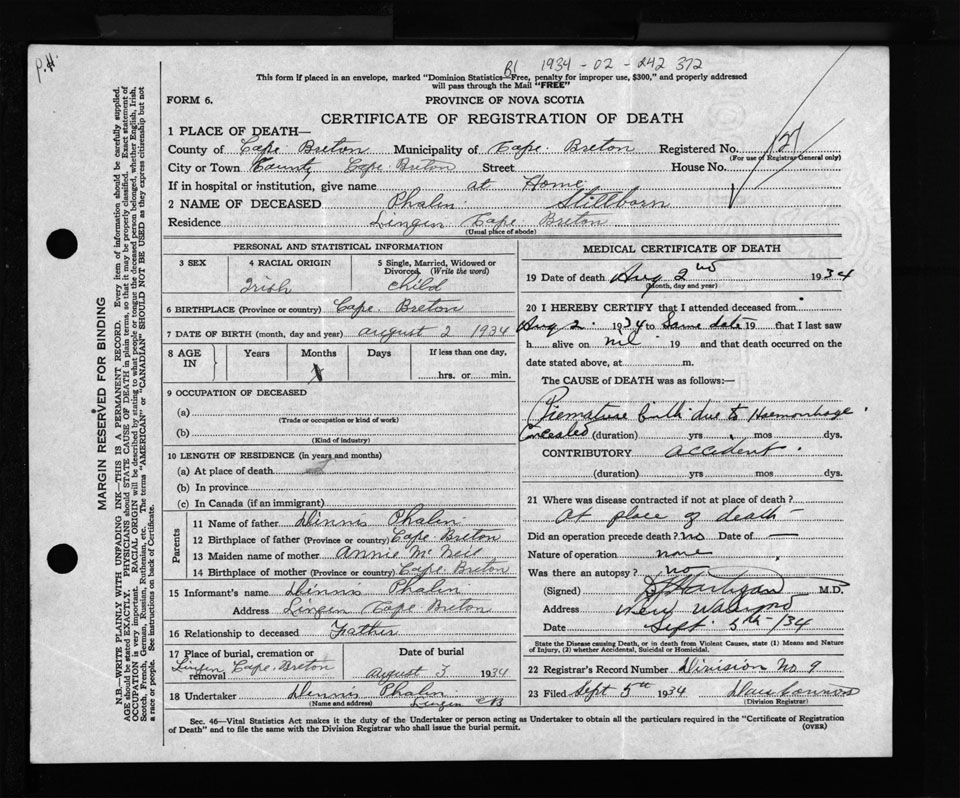 P.H.
B1 1934 - 02 - 242 372
This form if placed in an envelope, marked "Dominion Statistics—Free, penalty for improper use, $300," and properly addressed
will pass through the Mail "FREE"
FORM 6.
PROVINCE OF NOVA SCOTIA
CERTIFICATE OF REGISTRATION OF DEATH
1 PLACE OF DEATH—
County of Cape Breton Municipality of Cape Breton Registered No. 127
(For use of Registrar General only)
City or Town County Cape Breton Street House No.
If in hospital or institution, give name at Home
2 NAME OF DECEASED Phalin Stillborn
Residence Lingin Cape Breton
(Usual place of abode)
PERSONAL AND STATISTICAL INFORMATION
3 SEX 4 RACIAL ORIGIN 5 Single, Married, Widowed or Divorced (Write the word)
Irish Child
6 BIRTHPLACE (Province or country) Cape Breton
7 DATE OF BIRTH (month, day and year) August 2 1934
8 AGE IN Years Months Days If less than one day,
hrs. or min.
9 OCCUPATION OF DECEASED
(a)
(Trade or occupation or kind of work)
(b)
(Kind of industry)
10 LENGTH OF RESIDENCE (in years and months)
(a) At place of death
(b) In province
(c) In Canada (if an immigrant)
Parents
11 Name of father Dinnis Phalin
12 Birthplace of father (Province or country) Cape Breton
13 Maiden name of mother Annie Mc Neil
14 Birthplace of mother (Province or country) Cape Breton
15 Informant's name Dinnis Phalin
Address Lingin Cape Breton
16 Relationship to deceased Father
17 Place of burial, cremation or removal Lingin Cape Breton Date of burial August 3 1934
18 Undertaker Dinnis Phalin
(Name and address) Lingin CB
MEDICAL CERTIFICATE OF DEATH
19 Date of death Aug 2nd 1934
(Month, day and year)
20 I HEREBY CERTIFY that I attended deceased from
Aug 2. 1934 to Same date 19 that I last saw
h alive on nil 19 and that death occurred on the
date stated above, at m.
The CAUSE of DEATH was as follows:—
Premature birth due to Haemorrhage
Concealed (duration) yrs mos dys.
CONTRIBUTORY accident.
(duration) yrs. mos. dys.
21 Where was disease contracted if not at place of death?
At place of death
Did an operation precede death? no Date of —
Nature of operation none
Was there an autopsy? no
(Signed) Hartigan M.D.
Address New Waterford
Date Sept. 5th - /34
State the Disease causing Death, or in death from Violent Causes, state (1) Means and Nature
of Injury, and (2) whether Accidental, Suicidal or Homicidal.
22 Registrar's Record Number Division No. 9
23 Filed Sept 5th 1934 Connors
(Division Registrar)
Sec. 46—Vital Statistics Act makes it the duty of the Undertaker or person acting as Undertaker to obtain all the particulars required in the "Certificate of Registration
of Death" and to file the same with the Division Registrar who shall issue the burial permit.
(OVER)
MARGIN RESERVED FOR BINDING
N.B.—WRITE PLAINLY WITH UNFADING INK—THIS IS A PERMANENT RECORD. Every item of information should be carefully supplied.
AGE should be stated EXACTLY. PHYSICIANS should STATE CAUSE OF DEATH in plain terms, so that it may be properly classified. Exact statement of
OCCUPATION is very important. RACIAL ORIGIN will be described by stating to what people or tongue the deceased person belonged, whether English, Irish,
Scotch, French, German, Russian, Ruthenian, etc. The terms "AMERICAN" or "CANADIAN" SHOULD NOT BE USED as they express citizenship but not
a race or people. See instructions on back of Certificate.